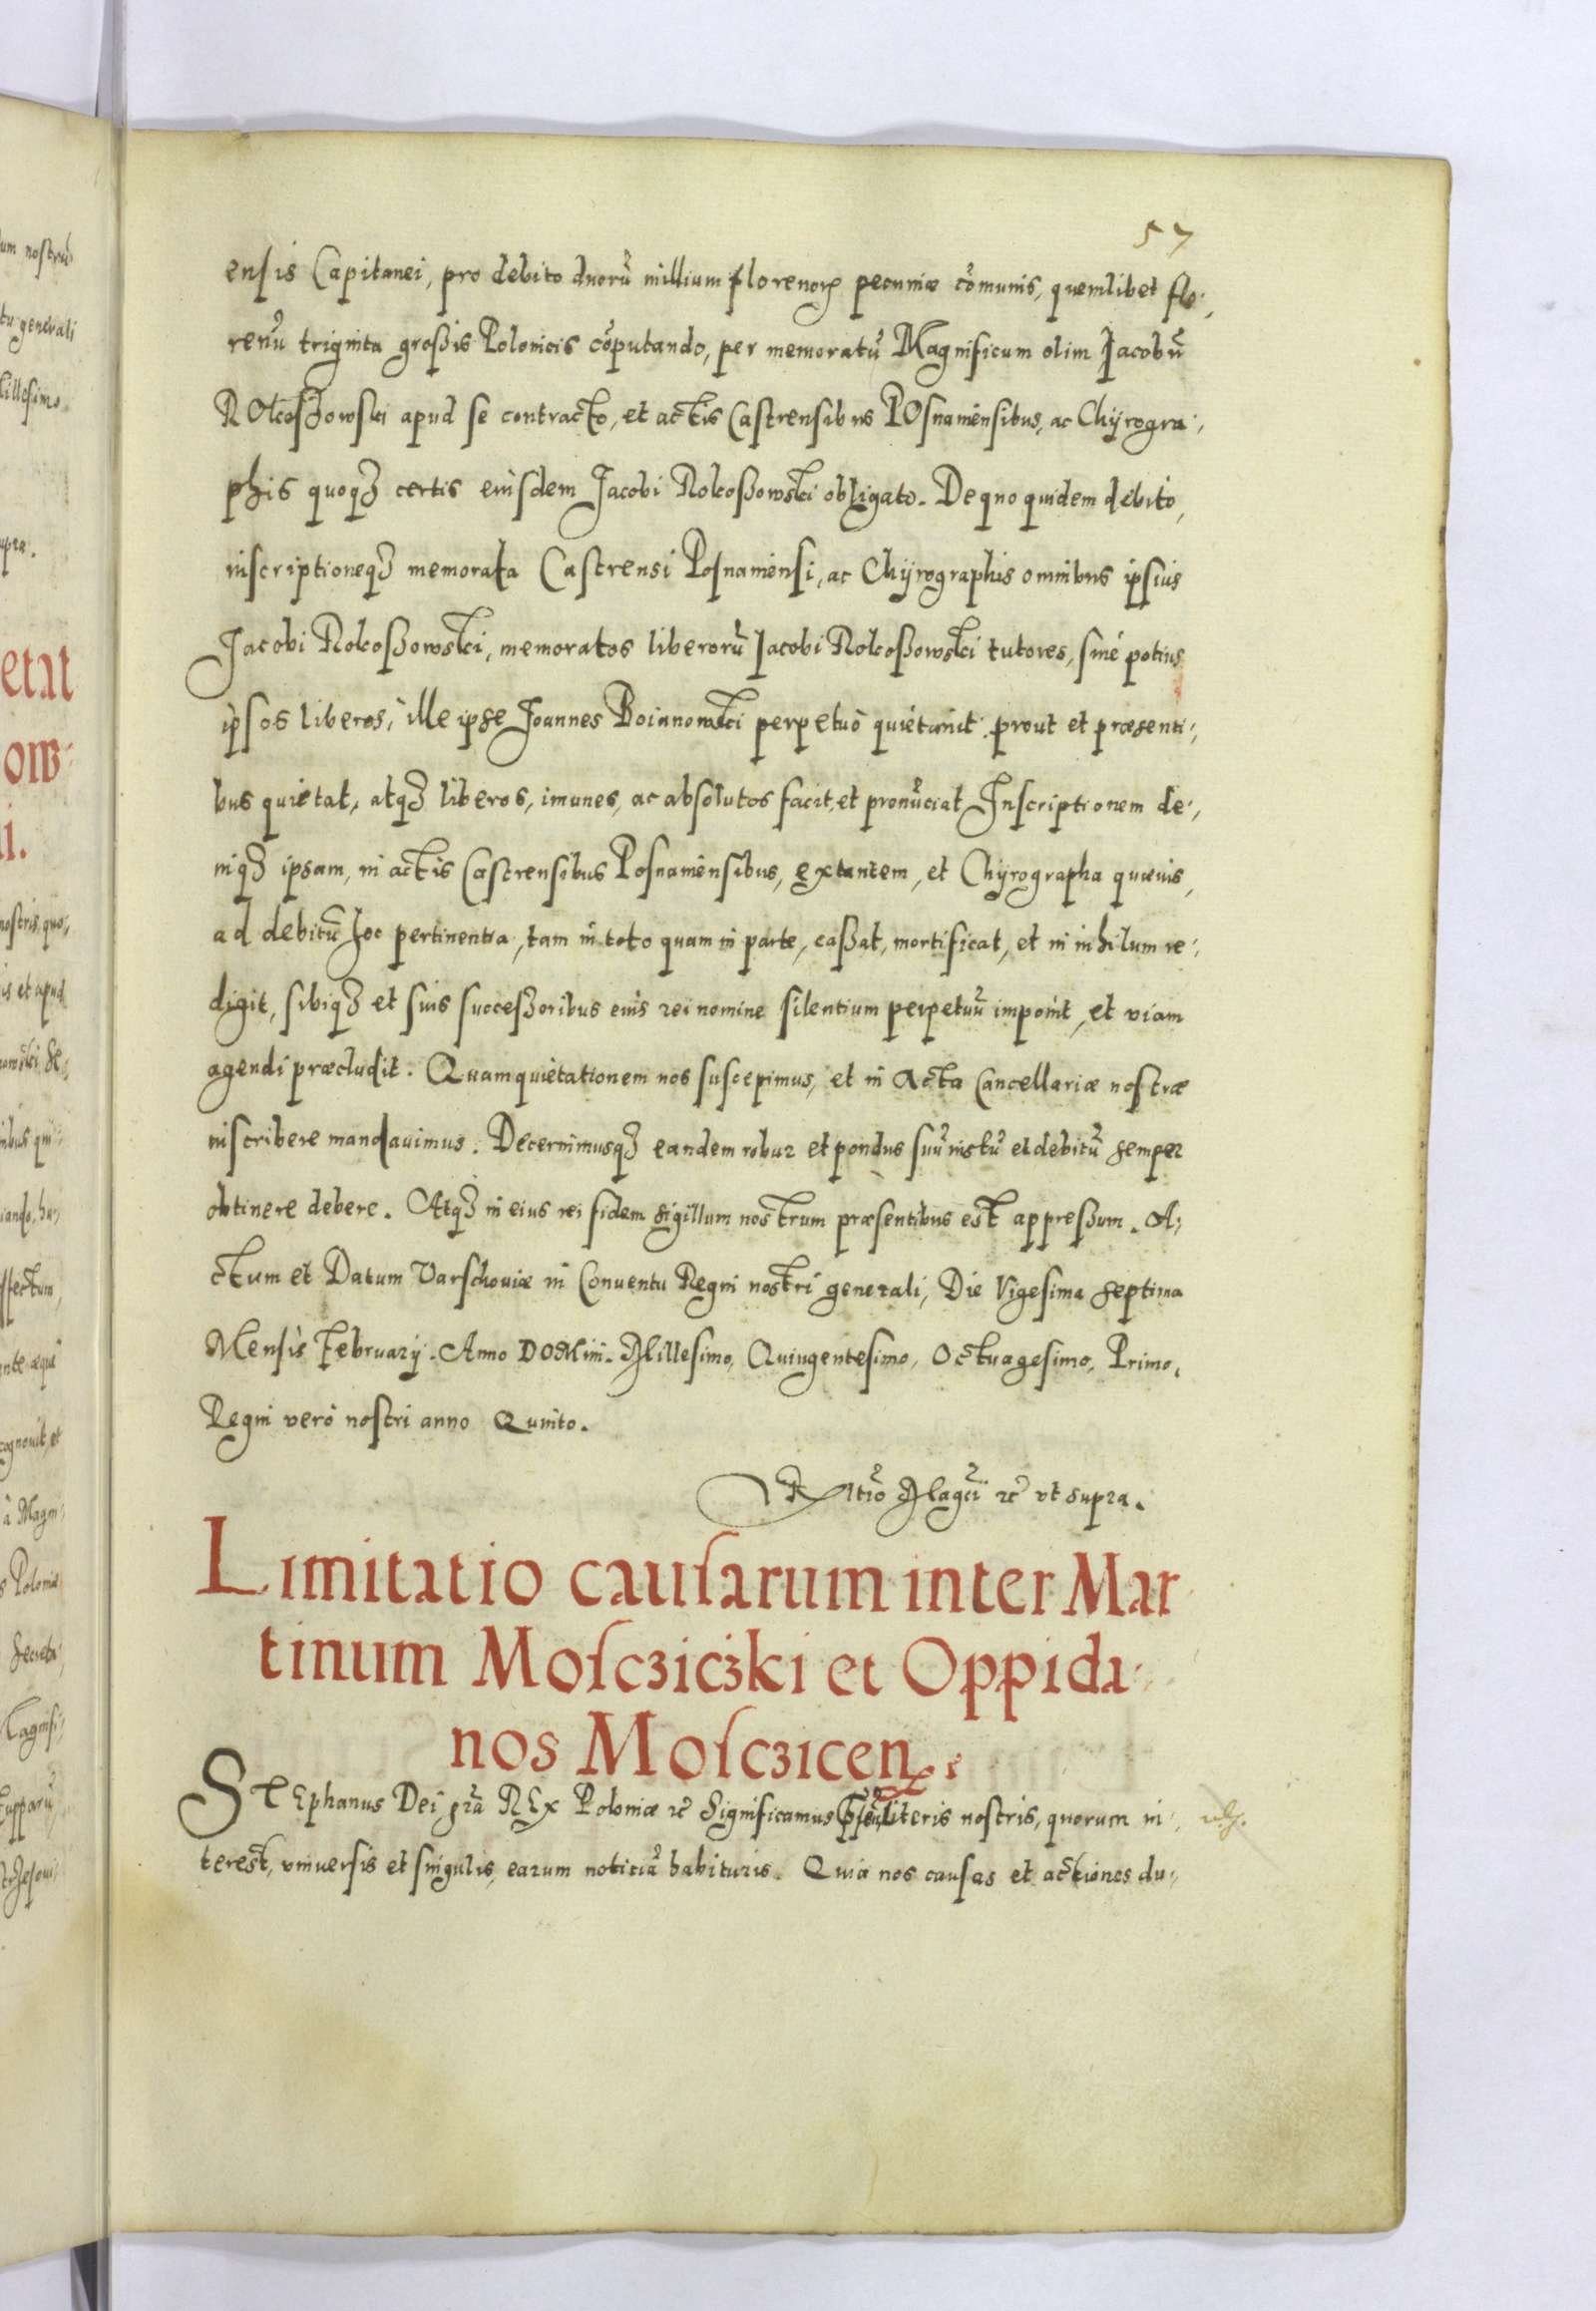 57
ensis Capitanei, pro debito duorũ millium florenorꝝ pecuniæ cõmunis, quemlibet flo-
renũ triginta großis Polonicis cõputando, per memoratũ Magnificum olim Jacobũ
ROkoszowski apud se contracto, et actis Castrensibus POsnaniensibus, ac Chyrogra-
phis quoqꝫ certis eiusdem Jacobi Rokoßowski obligato. De quo quidem debito,
inscriptioneqꝫ memorata Castrensi Posnaniensi, ac Chyrographis omnibus ipsius
Jacobi Rokoßowski, memoratos liberorũ Jacobi Rokoßowski tutores, siue potius
ipsos liberos, ille ipse Joannes Boianowski perpetuo quietauit. prout et præsenti-
bus quietat, atqꝫ liberos, imunes, ac absolutos facit, et pronũciat Inscriptionem de-
niqꝫ ipsam, in actis Castrensibus Posnaniensibus, extantem, et Chyrographa quæuis,
ad debitũ hoc pertinentia, tam in toto quam in parte, caßat, mortificat, et in nihilum re-
digit, sibiqꝫ et suis succeßoribus eius rei nomine silentium perpetuũ imponit, et viam
agendi præcludit. Quam quietationem nos suscepimus, et in Acta Cancellariæ nostræ
inscribere mandauimus. Decernimusqꝫ eandem robur et pondus suũ iustũ et debitũ semper
obtinere debere. Atqꝫ in eius rei fidem sigillum nostrum præsentibus est appreßum. A-
ctum et Datum Varschouiæ in Conuentu Regni nostri generali, Die Vigesima septima
Mensis February. Anno DOMini. Millesimo, Quingentesimo, Octuagesimo, Primo,
Regni vero nostri anno Quinto.
Rltĩo Magcĩ ꝛc̃ vt supra.
Limitatio causarum inter Mar
tinum Mosczicżki et Oppida-
nos Mosczicen.
STEphanus Dei grã REx Poloniæ ꝛc̃ Significamus pñt̃ literis nostris, quorum in-
terest, vniuersis et singulis, earum noticiã habituris. Quia nos causas et actiones du-